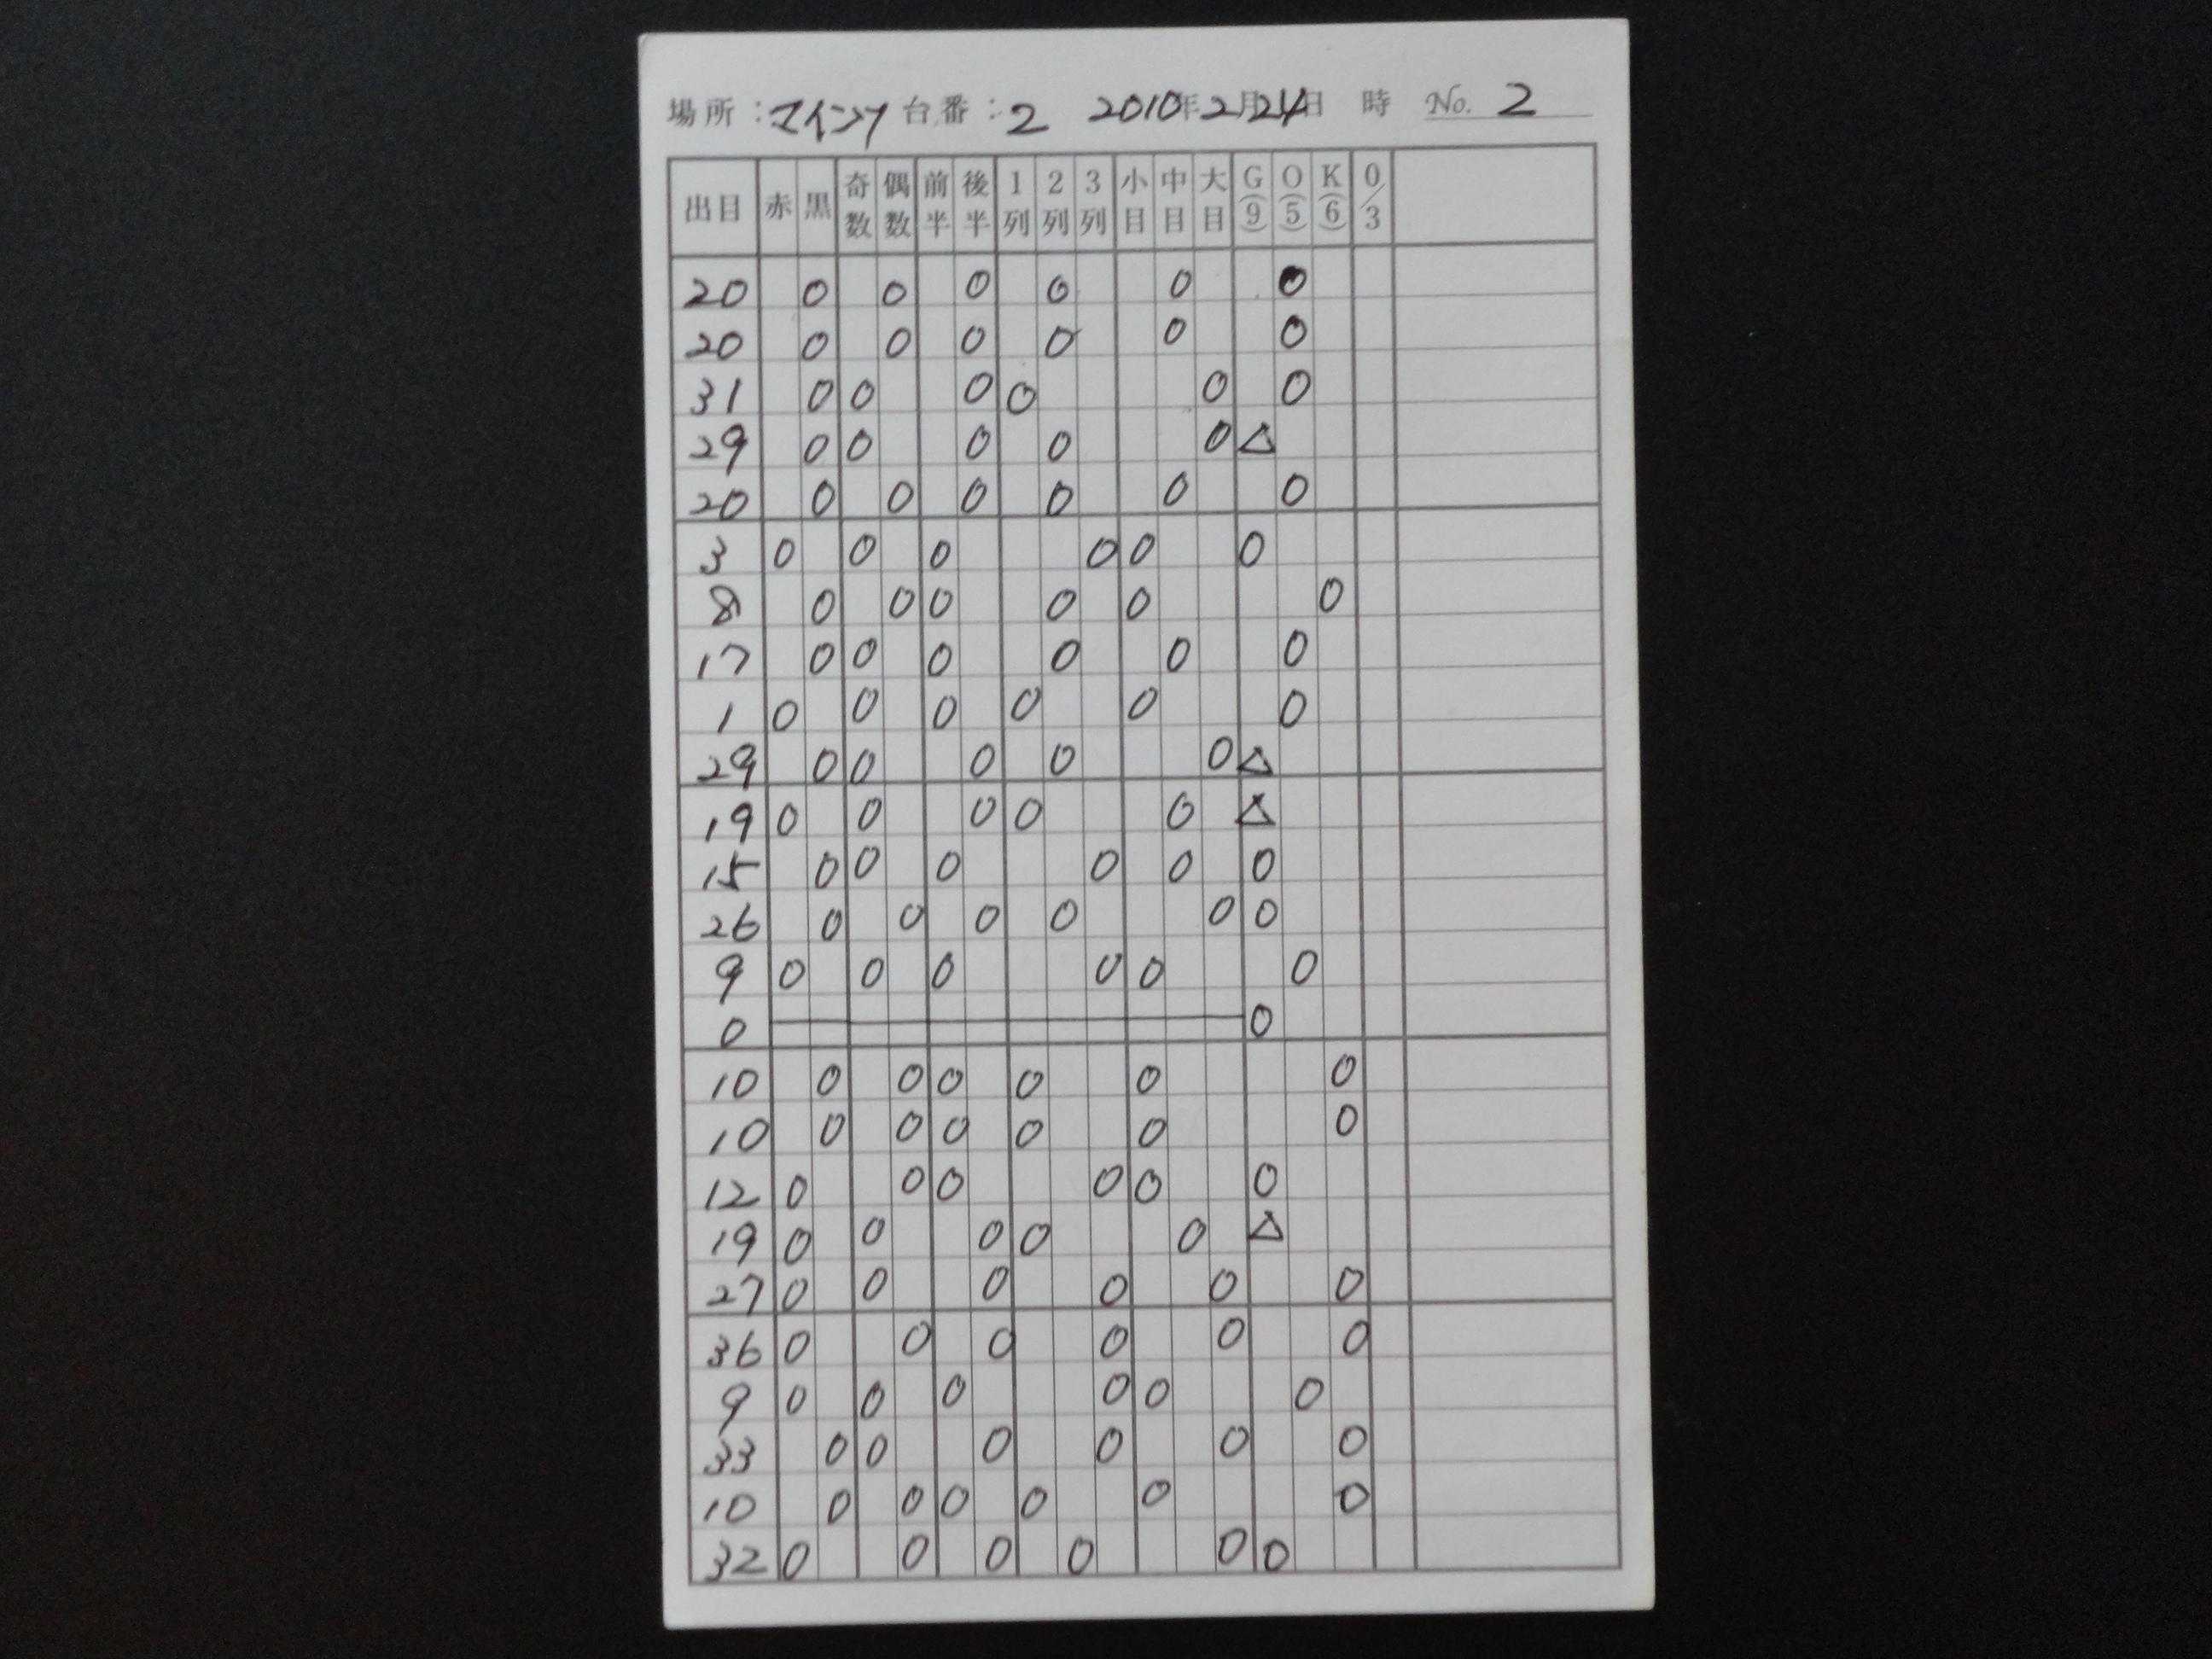 場所：マインツ 台番：2 2010年2月24日 時 No. 2
出目 赤 黒 奇数 偶数 前半 後半 1列 2列 3列 小目 中目 大目 G(9) O(5) K(6) 0/3
20 0 0 0 0 0 0
20 0 0 0 0 0 0
31 0 0 0 0 0 0
29 0 0 0 0 0 △
20 0 0 0 0 0 0
3 0 0 0 0 0 0
8 0 0 0 0 0 0
17 0 0 0 0 0 0
1 0 0 0 0 0 0
29 0 0 0 0 0 △
19 0 0 0 0 0 △
15 0 0 0 0 0 0
26 0 0 0 0 0 0
9 0 0 0 0 0 0
0 0
10 0 0 0 0 0 0
10 0 0 0 0 0 0
12 0 0 0 0 0 0
19 0 0 0 0 0 △
27 0 0 0 0 0 0
36 0 0 0 0 0 0
9 0 0 0 0 0 0
33 0 0 0 0 0 0
10 0 0 0 0 0 0
32 0 0 0 0 0 0